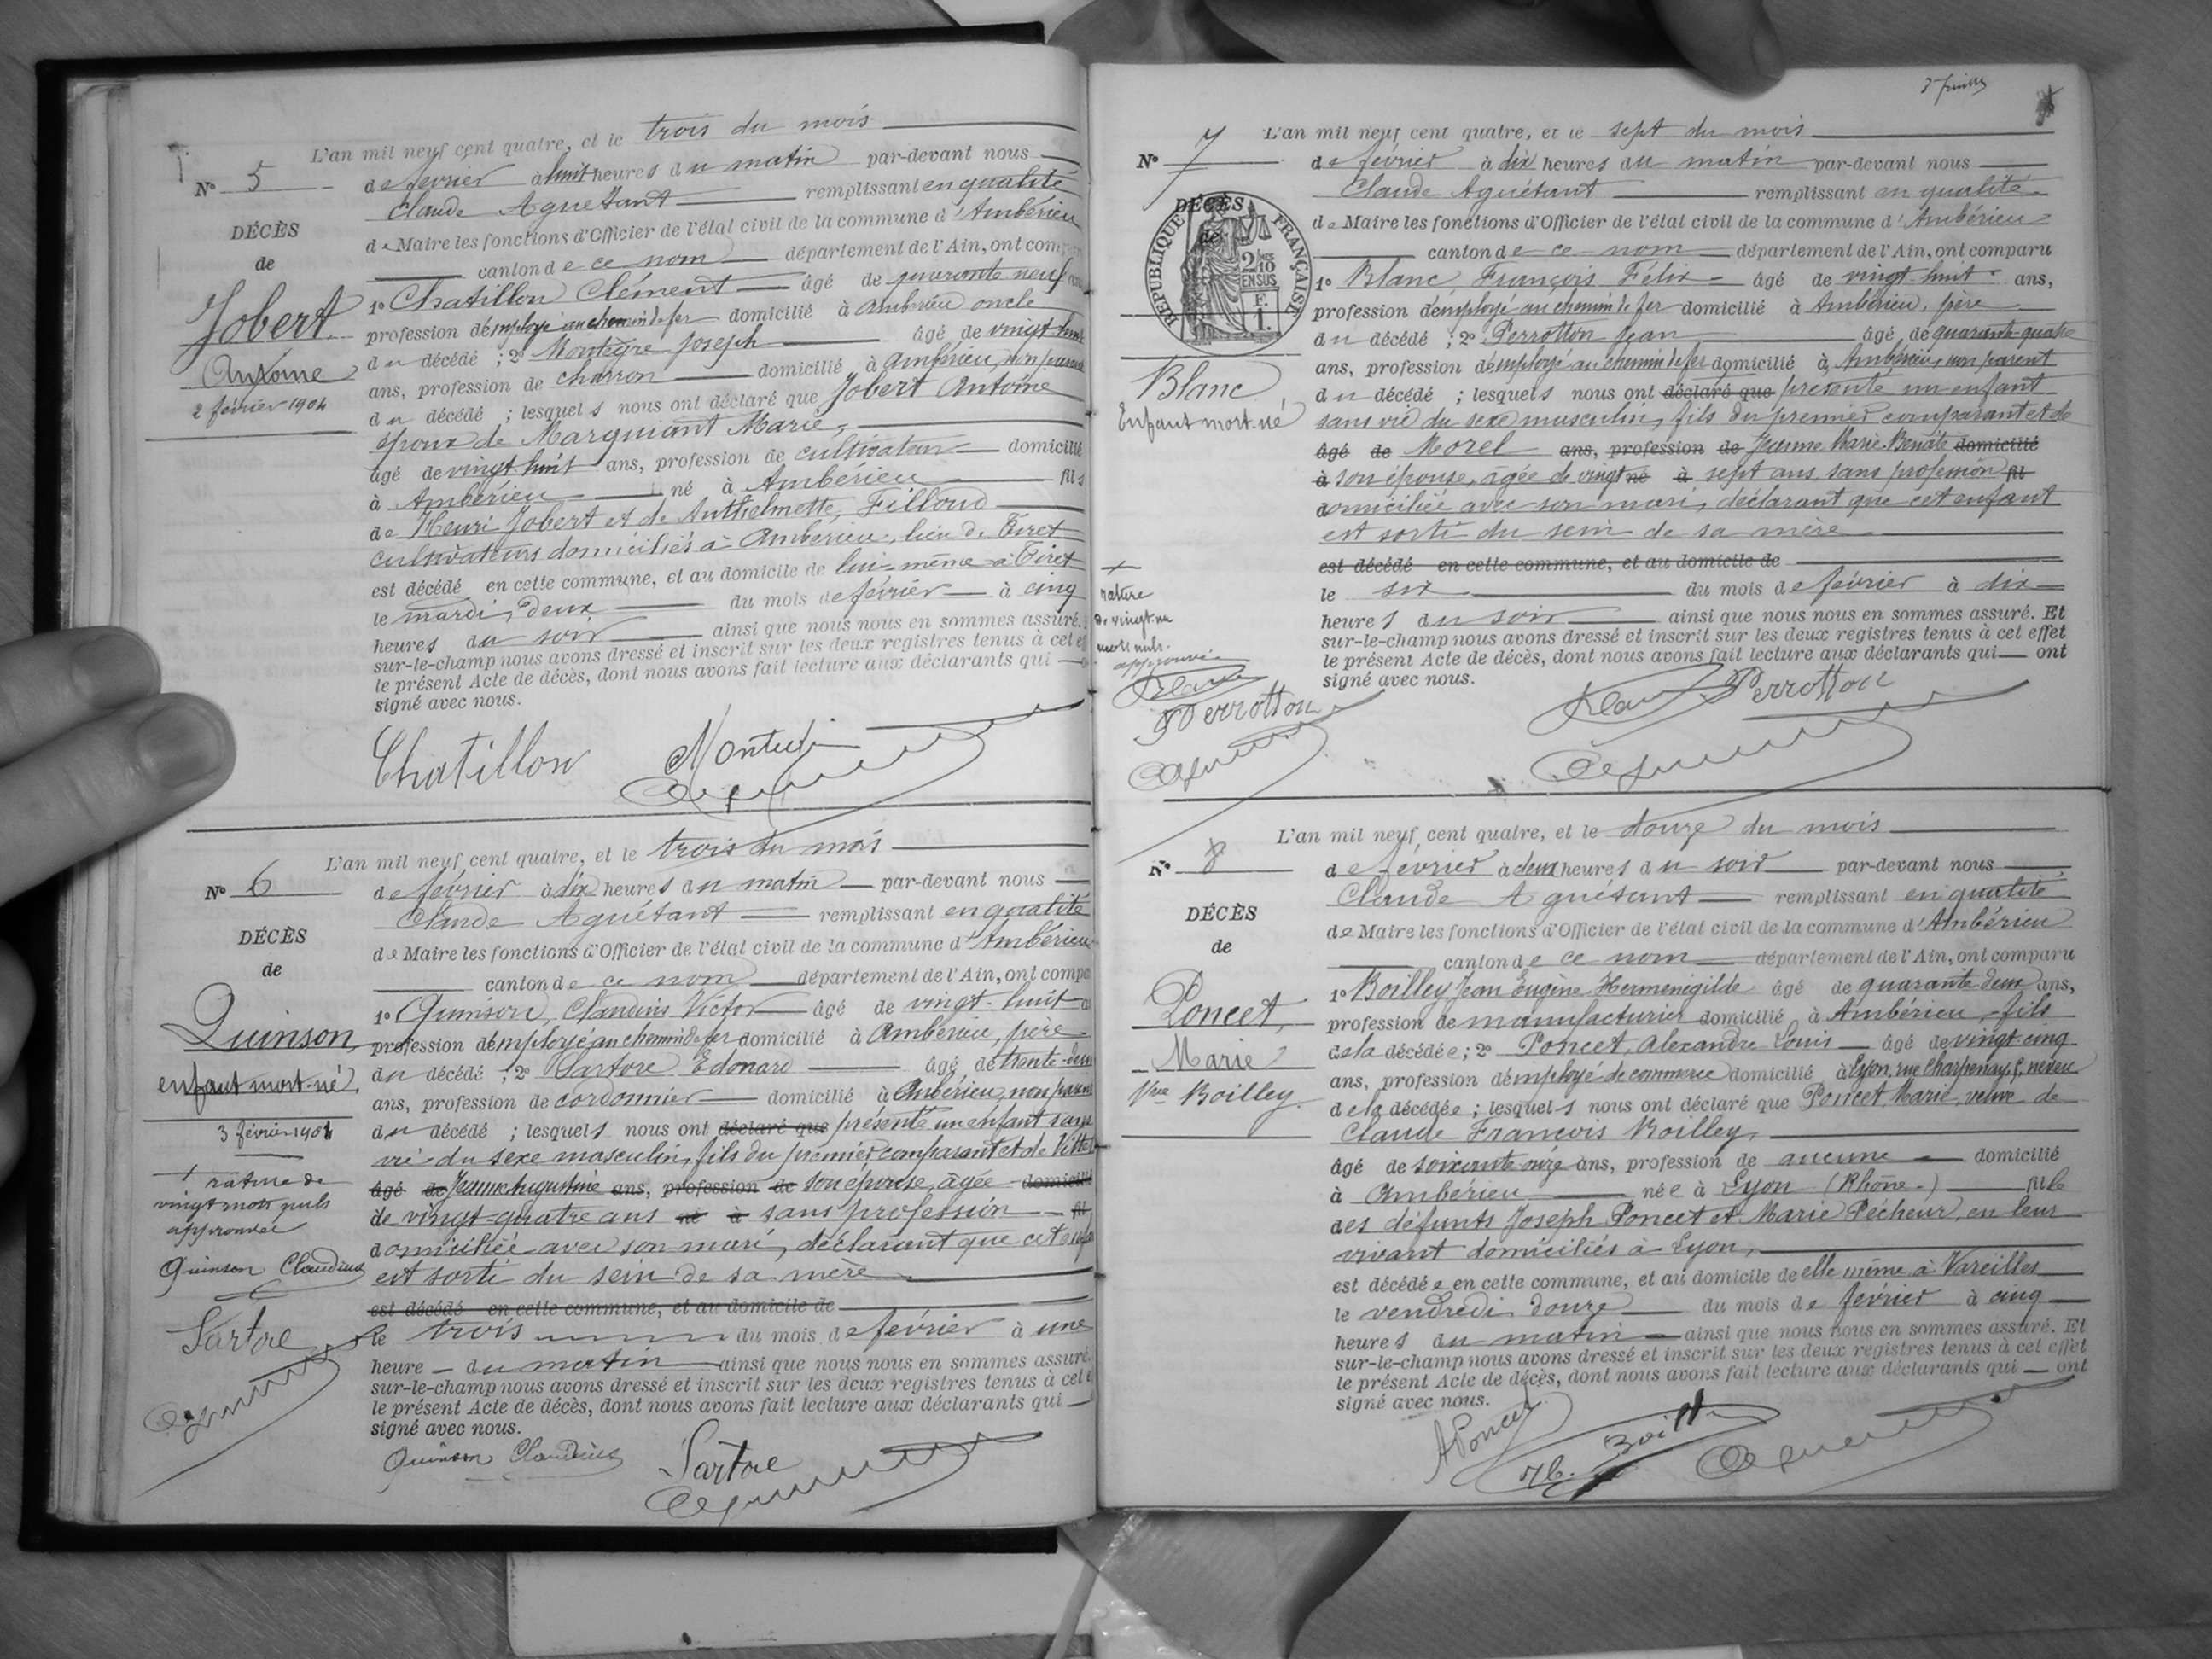 L'an mil neuf cent quatre, et le trois du mois
N° 5
de février à huit heures du matin par-devant nous
Claude Aguétant remplissant en qualité
DÉCÈS
de Maire les fonctions d'Officier de l'état civil de la commune d'Ambérieu
de
canton de ce nom département de l'Ain, ont comp
Jobert
1° Chatillon Clément âgé de quarante neuf
profession d'employé au chemin de fer domicilié à Ambérieu oncle
Antoine
du décédé ; 2° Montègre Joseph âgé de vingt huit
2 février 1904
ans, profession de charron domicilié à Ambérieu, non parent
du décédé ; lesquels nous ont déclaré que Jobert Antoine
époux de Marguiant Marie,
âgé de vingt huit ans, profession de cultivateur domicilié
à Ambérieu né à Ambérieu fils
de Henri Jobert et de Anthelmette Filloud
cultivateurs domiciliés à Ambérieu, lieu de Tiret
est décédé en cette commune, et au domicile de lui-même à Tiret
le mardi, deux du mois de février à cinq
heures du soir ainsi que nous nous en sommes assuré.
sur-le-champ nous avons dressé et inscrit sur les deux registres tenus à cet
le présent Acte de décès, dont nous avons fait lecture aux déclarants qui
signé avec nous.
Chatillon
L'an mil neuf cent quatre, et le trois du mois
N° 6
de février à dix heures du matin par-devant nous
Claude Aguétant remplissant en qualité
DÉCÈS
de Maire les fonctions d'Officier de l'état civil de la commune d'Ambérieu
de
canton de ce nom département de l'Ain, ont compa
Quinson
1° Quinson, Claudius Victor âgé de vingt-huit
profession d'employé au chemin de fer domicilié à Ambérieu, père
enfant mort-né
du décédé ; 2° Sartore Edouard âgé de trente-deux
ans, profession de cordonnier domicilié à Ambérieu, non parent
3 février 1904
du décédé ; lesquels nous ont déclaré que présenté un enfant sans
vie du sexe masculin, fils du premier comparant et de
rature de
vingt mots nuls
approuvée
Quinson Claudius
Sartore
âgé de Jeanne Augustine ans, profession de son épouse, âgée domicilié
de vingt-quatre ans né à sans profession fil
domiciliée avec son mari, déclarant que cet enfant
est sorti du sein de sa mère
est décédé en cette commune, et au domicile de
le trois du mois de février à une
heure du matin ainsi que nous nous en sommes assuré.
sur-le-champ nous avons dressé et inscrit sur les deux registres tenus à cet
le présent Acte de décès, dont nous avons fait lecture aux déclarants qui
signé avec nous.
Quinson Claudius Sartore
L'an mil neuf cent quatre, et le sept du mois
N° 7
de février à dix heures du matin par-devant nous
Claude Aguétant remplissant en qualité
DÉCÈS
de
RÉPUBLIQUE FRANÇAISE
2/10 EN SUS
F.
1.
de Maire les fonctions d'Officier de l'état civil de la commune d'Ambérieu
canton de ce nom département de l'Ain, ont comparu
1° Blanc, François Félix âgé de vingt-huit ans,
profession d'employé au chemin de fer domicilié à Ambérieu, père
du décédé ; 2° Perrotton Jean âgé de quarante-quatre
ans, profession d'employé au chemin de fer domicilié à Ambérieu, non parent
Blanc
Enfant mort-né
du décédé ; lesquels nous ont déclaré que présenté un enfant
sans vie du sexe masculin, fils du premier comparant et de
âgé de Morel ans, profession de Jeanne Marie Benoîte domicilié
à son épouse, âgée de vingt né à sept ans sans profession fil
domiciliée avec son mari, déclarant que cet enfant
est sorti du sein de sa mère
est décédé en cette commune, et au domicile de
le six du mois de février à dix
heures du soir ainsi que nous nous en sommes assuré. Et
sur-le-champ nous avons dressé et inscrit sur les deux registres tenus à cet effet
le présent Acte de décès, dont nous avons fait lecture aux déclarants qui ont
signé avec nous.
rature
de vingt un
mots nuls
approuvée
Blanc
Perrotton
Blanc Perrotton
L'an mil neuf cent quatre, et le douze du mois
N° 8
de février à deux heures du soir par-devant nous
Claude Aguétant remplissant en qualité
DÉCÈS
de Maire les fonctions d'Officier de l'état civil de la commune d'Ambérieu
de
canton de ce nom département de l'Ain, ont comparu
Poncet,
1° Boilley Jean Eugène Herménégilde âgé de quarante deux ans,
profession de manufacturier domicilié à Ambérieu, fils
Marie
de la décédée ; 2° Poncet, Alexandre Louis âgé de vingt-cinq
ans, profession d'employé de commerce domicilié à Lyon, rue Charpenay, 5, neveu
Vve Boilley
de la décédée ; lesquels nous ont déclaré que Poncet, Marie, veuve de
Claude François Boilley,
âgé de soixante onze ans, profession de aucune domicilié
à Ambérieu née à Lyon (Rhône) fille
des défunts Joseph Poncet et Marie Pécheur, en leur
vivant domiciliés à Lyon,
est décédée en cette commune, et au domicile de elle même à Vareilles
le vendredi, douze du mois de février à cinq
heures du matin ainsi que nous nous en sommes assuré. Et
sur-le-champ nous avons dressé et inscrit sur les deux registres tenus à cet effet
le présent Acte de décès, dont nous avons fait lecture aux déclarants qui ont
signé avec nous.
APoncet